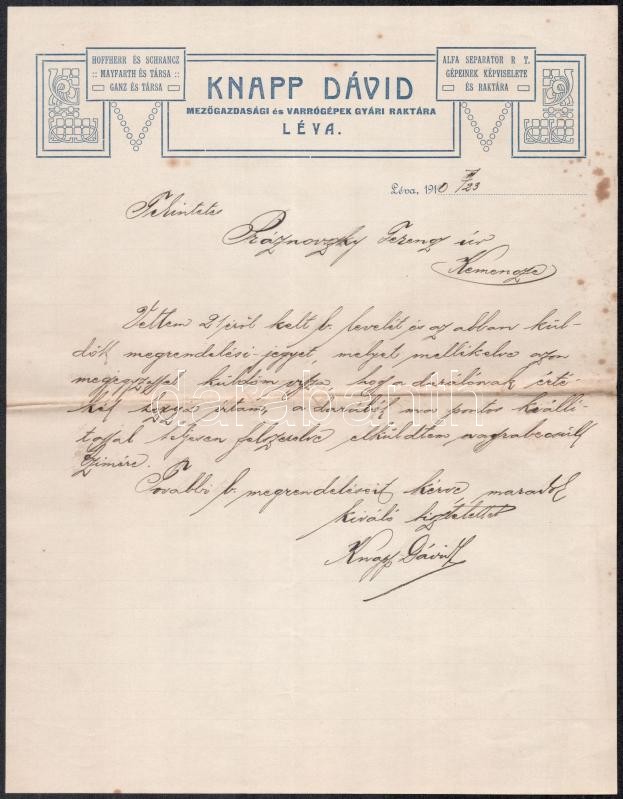 HOFFHERR ÉS SCHRANCZ
:: MAYFARTH ÉS TÁRSA ::
GANZ ÉS TÁRSA
KNAPP DÁVID
MEZŐGAZDASÁGI és VARRÓGÉPEK GYÁRI RAKTÁRA
LÉVA.
ALFA SEPARATOR R T.
GÉPEINEK KÉPVISELETE
ÉS RAKTÁRA
Léva, 1910 /23
Tekintetes
Práznovszky Ferencz úr
Kemencze
Vettem 21 iről kelt b. levelét és az abban kül-
dött megrendelési jegyet, melyet mellékelve azon
megjegyzéssel küldöm vissza, hogy darálónak érté-
két irtam, a darálót ma pontos kiálli-
tással teljesen felszerelve elküldtem nagyrabecsült
czimére.
További b. megrendeléseit kérve maradok
kiváló tisztelettel
Knapp Dávid
darabanth